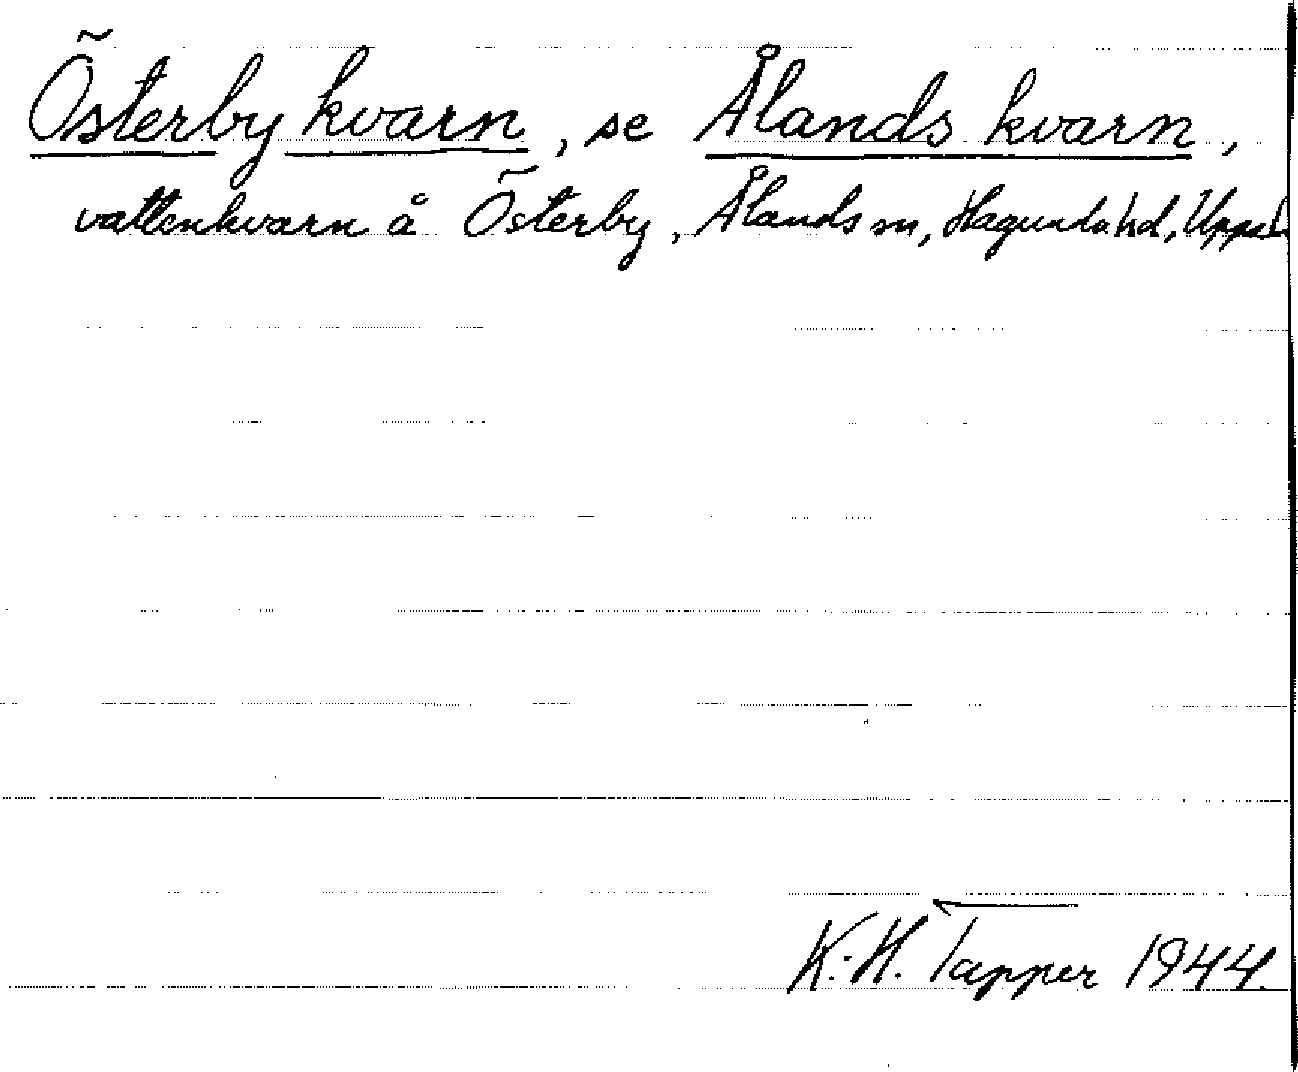 Österby kvarn, se Ålands kvarn,
vattenkvarn å Österby, Ålands sn, Hagunda hd, Upps. l.
K.-H. Tapper 1944.